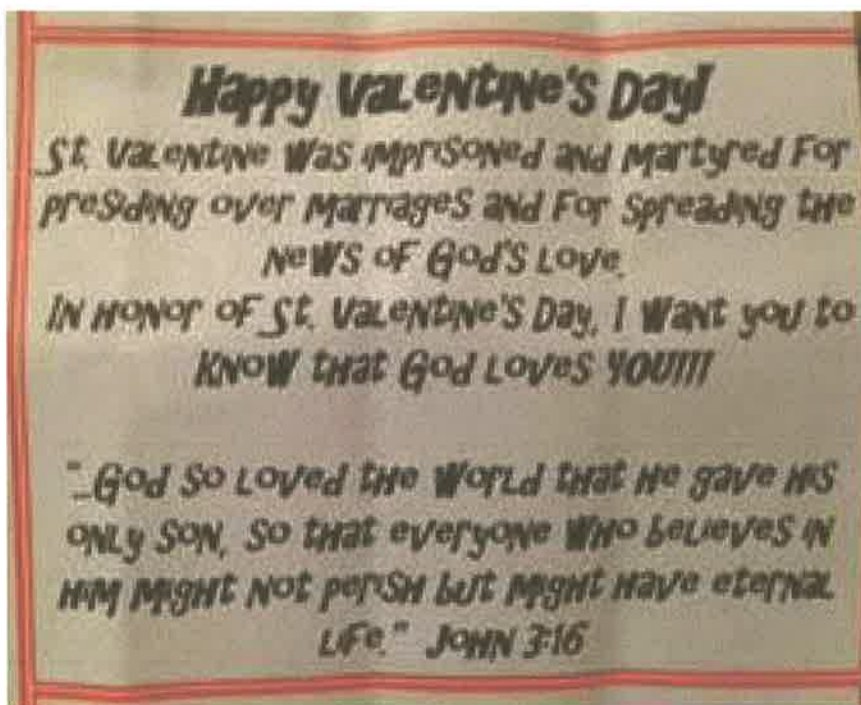 Happy Valentine's Day!
St. Valentine was imprisoned and martyred for
presiding over marriages and for spreading the
news of God's love.
In honor of St. Valentine's Day, I want you to
know that God loves YOU!!!!
"...God so loved the world that He gave His
only Son, so that everyone who believes in
Him might not perish but might have eternal
life." John 3:16